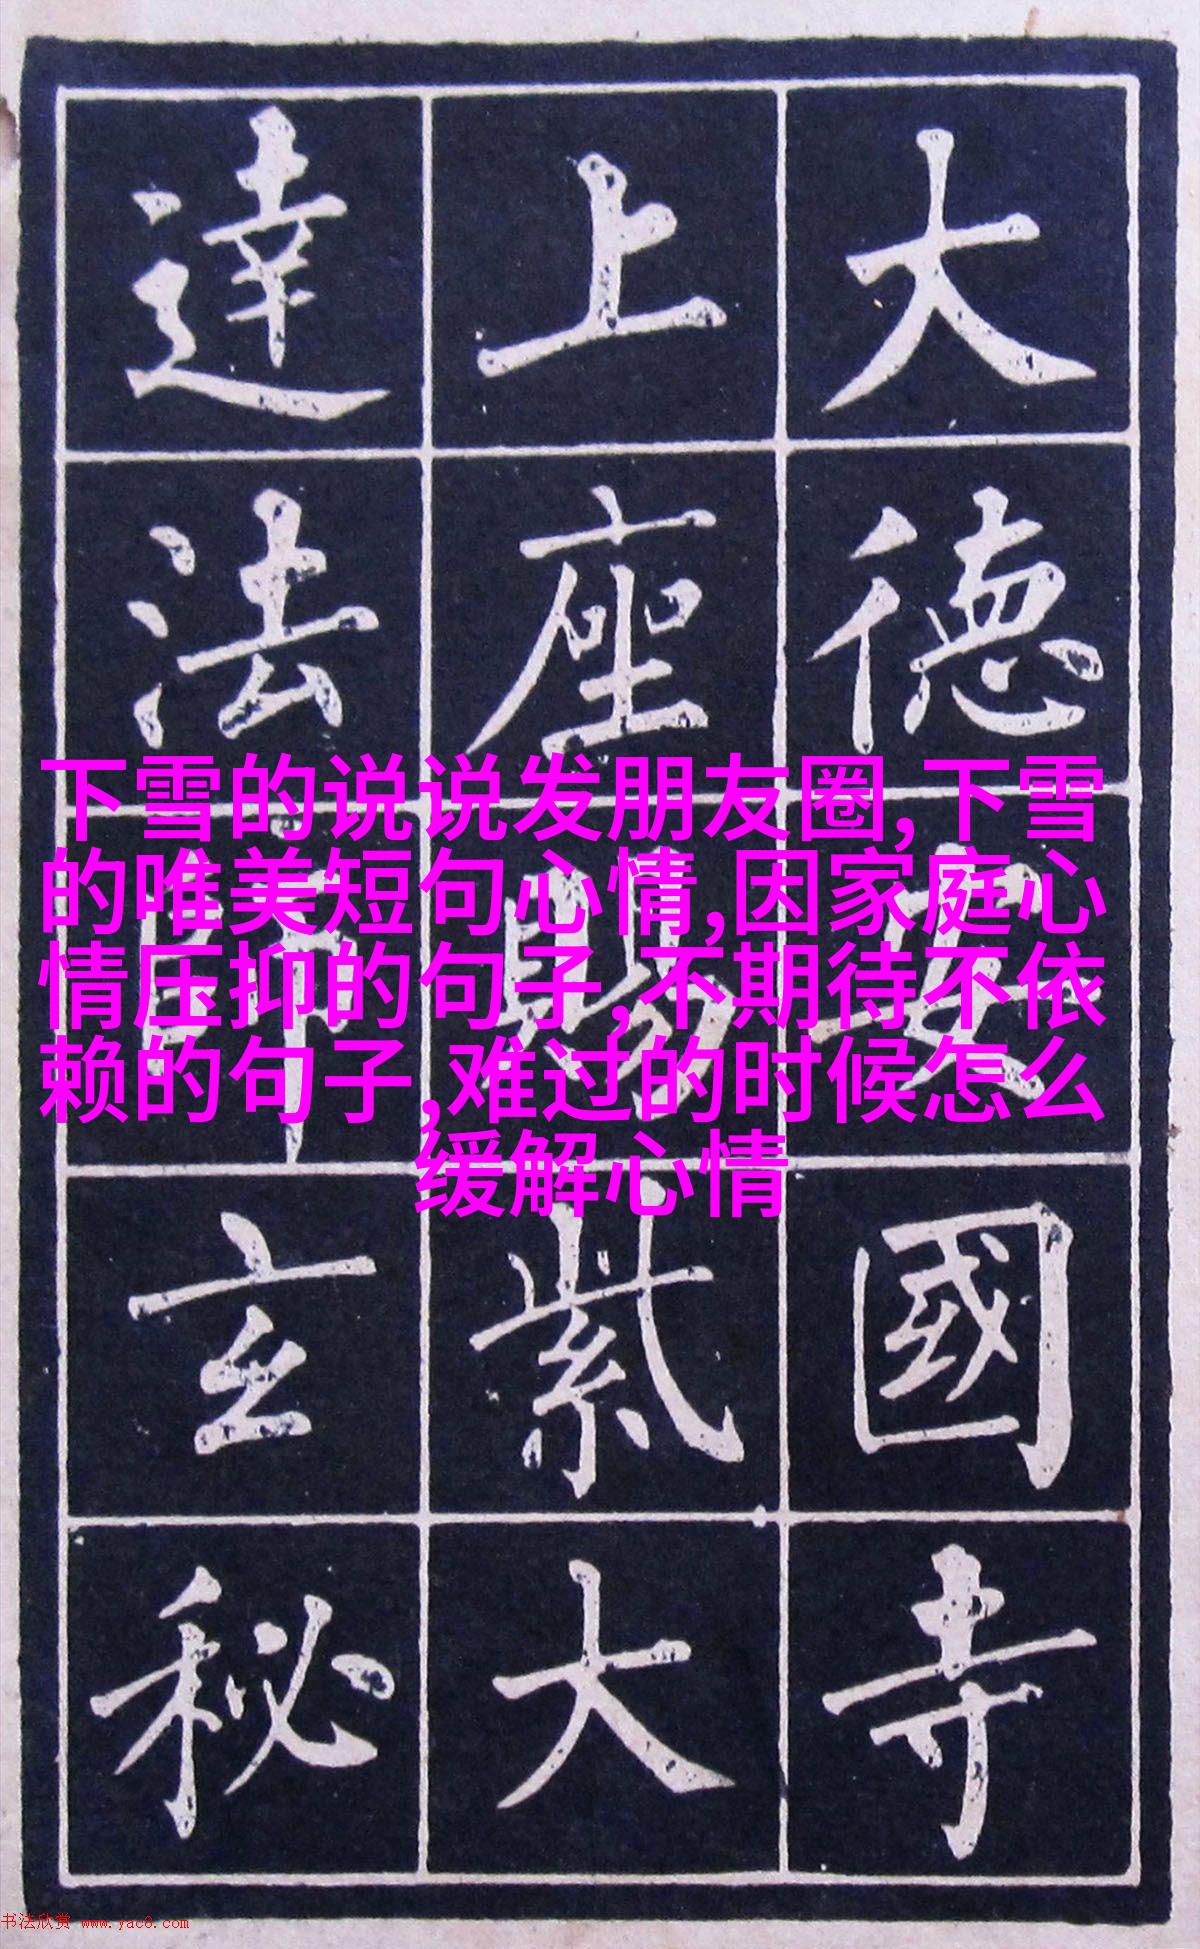 大德安國寺
上座賜紫大
達法師玄秘
下雪的说说发朋友圈,下雪
的唯美短句心情,因家庭心
情压抑的句子,不期待不依
赖的句子,难过的时候怎么
缓解心情
书法欣赏 www.yac8.com